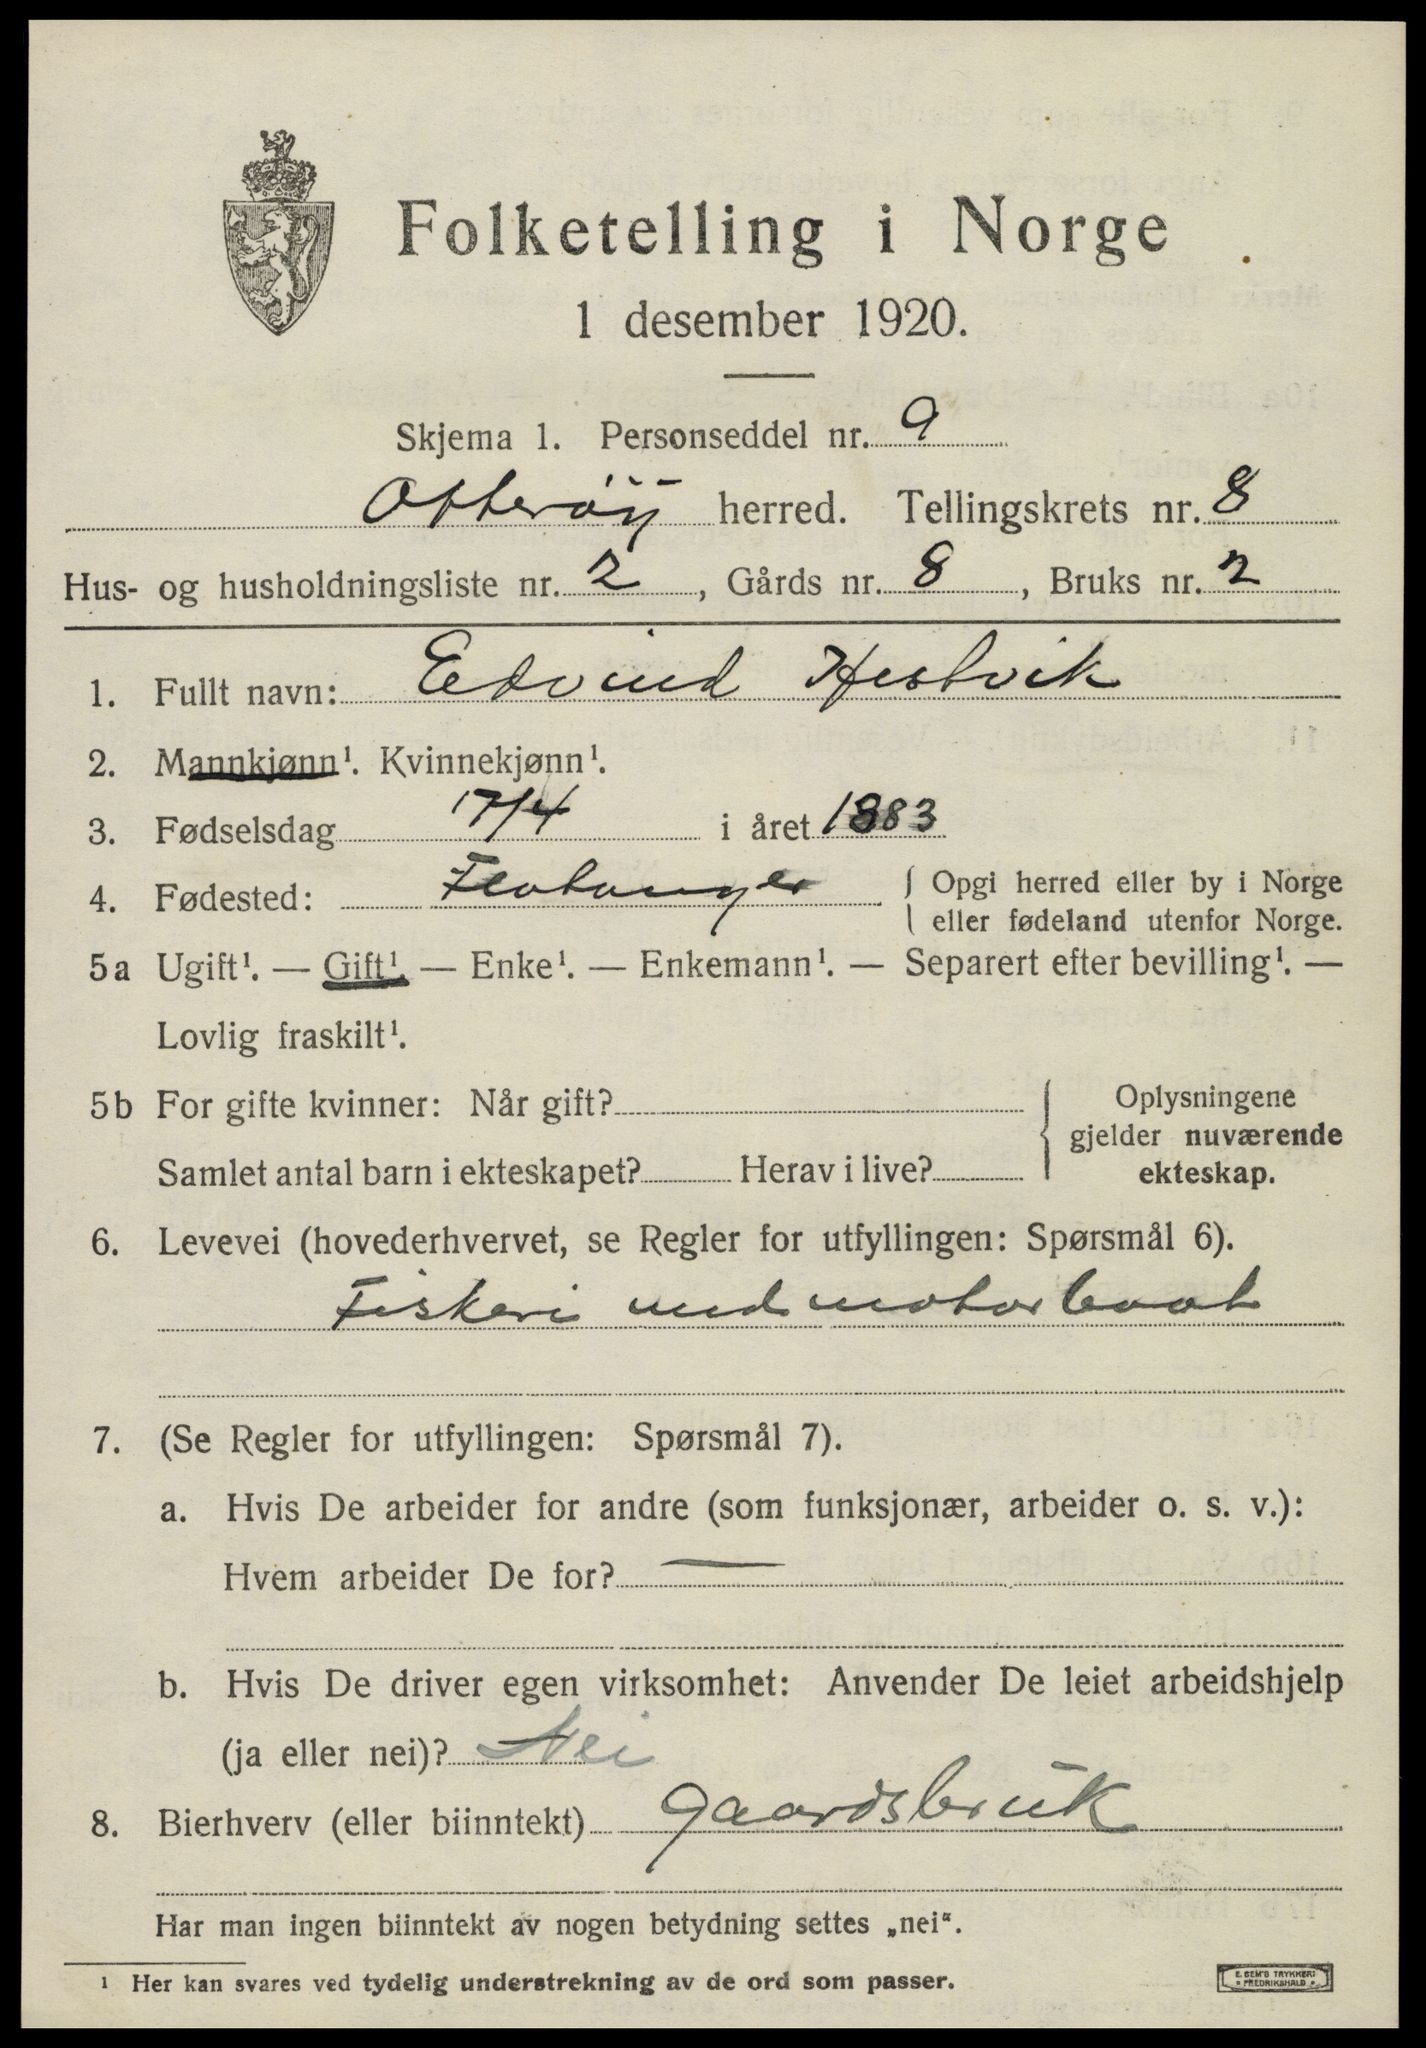 Folketelling i Norge
1 desember 1920.
Skjema 1. Personseddel nr. 9
Otterøy herred. Tellingskrets nr. 8
Hus- og husholdningsliste nr. 2, Gårds nr. 8, Bruks nr. 2
1. Fullt navn: Edvind Hestvik
2. Mannkjønn¹. Kvinnekjønn¹.
3. Fødselsdag 17/4 i året 1883
4. Fødested: Flatanger { Opgi herred eller by i Norge
eller fødeland utenfor Norge.
5a Ugift¹. — Gift¹. — Enke¹. — Enkemann¹. — Separert efter bevilling¹. —
Lovlig fraskilt¹.
5b For gifte kvinner: Når gift? { Oplysningene
gjelder nuværende
Samlet antal barn i ekteskapet? Herav i live? ekteskap.
6. Levevei (hovederhvervet, se Regler for utfyllingen: Spørsmål 6).
Fiskeri med motorbaat
7. (Se Regler for utfyllingen: Spørsmål 7).
a. Hvis De arbeider for andre (som funksjonær, arbeider o. s. v.):
Hvem arbeider De for? —
b. Hvis De driver egen virksomhet: Anvender De leiet arbeidshjelp
(ja eller nei)? Nei
8. Bierhverv (eller biinntekt) gaardsbruk
Har man ingen biinntekt av nogen betydning settes „nei“.
¹ Her kan svares ved tydelig understrekning av de ord som passer.
E. SEM'S TRYKKERI
FREDRIKSHALD